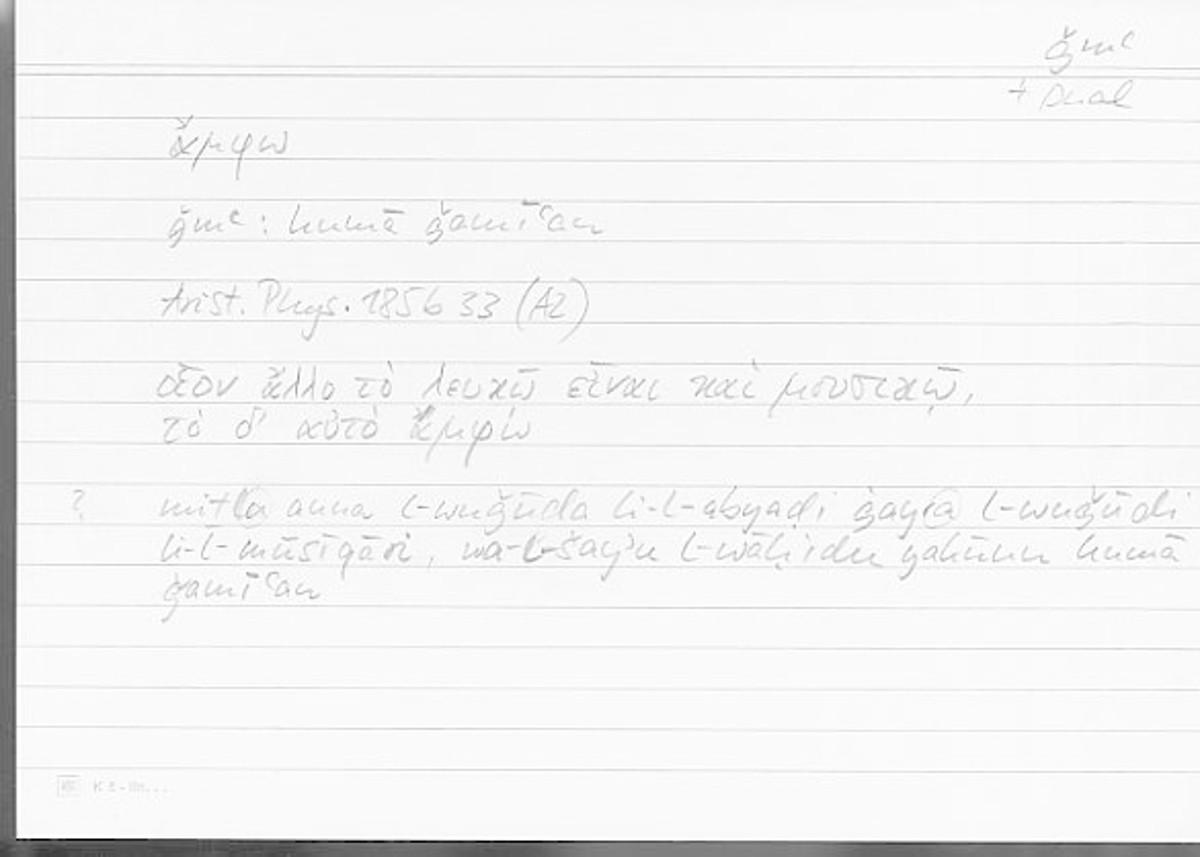 ǧmʿ
+ Dual
ἄμφω
ǧmʿ : humā ǧamīʿan
Arist. Phys. 185b 33 (A2)
οἷον ἄλλο τὸ λευκῷ εἶναι καὶ μουσικῷ,
τὸ δ' αὐτὸ ἄμφω
? mitla anna l-wuǧūda li-l-abyaḍi ġayra l-wuǧūdi
li-l-mūsīqāri, wa-l-šayʾu l-wāḥidu yakūnu humā
ǧamīʿan